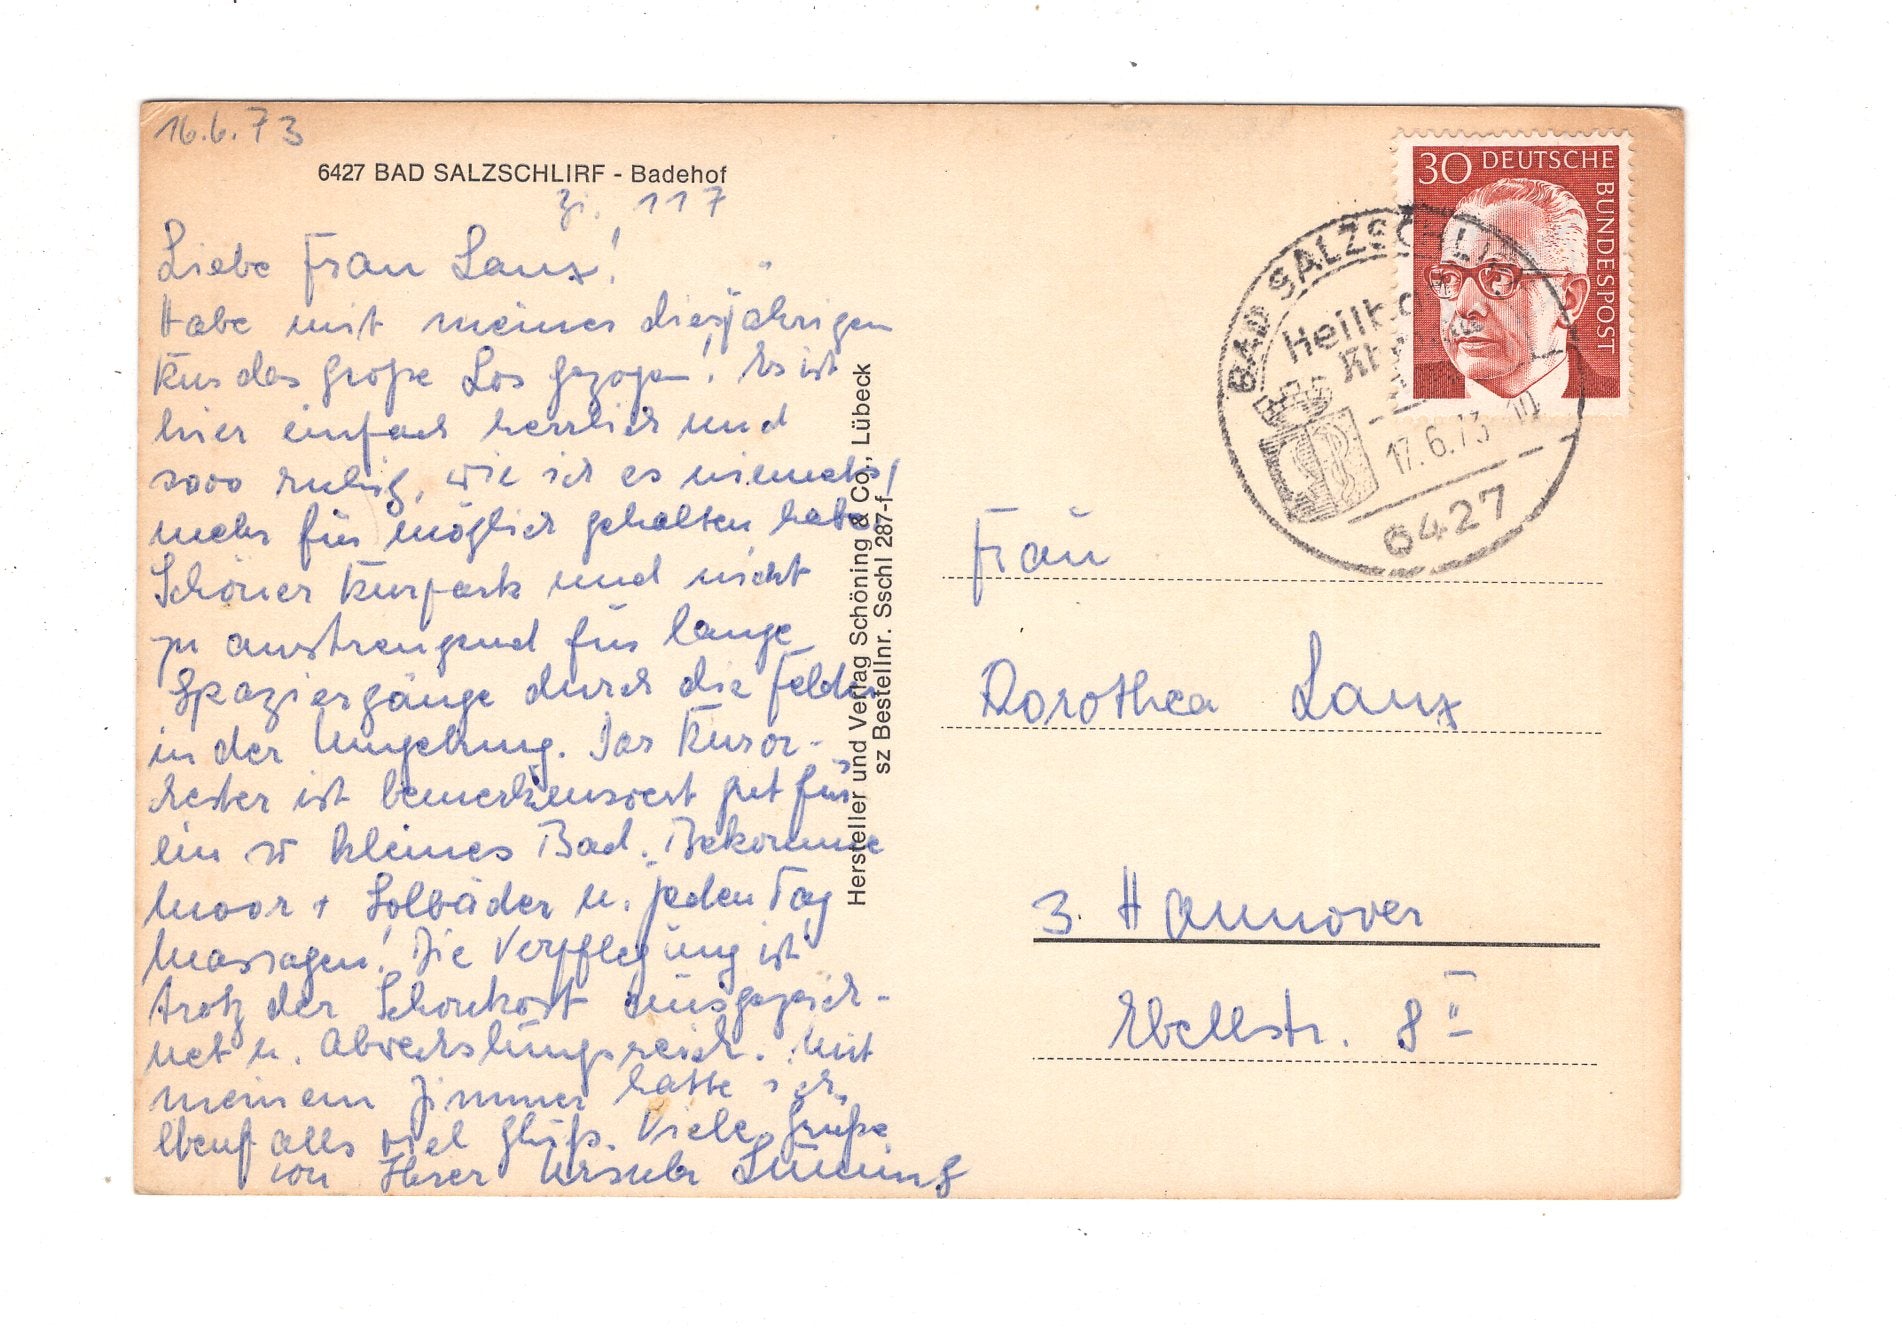 16.6.73
6427 BAD SALZSCHLIRF - Badehof
Zi. 117
Liebe Frau Lanx!
Habe mit meiner diesjährigen
Kur das große Los gezogen! Es ist
hier einfach herrlich und
sooo ruhig, wie ich es niemals
mehr für möglich gehalten habe.
Schöner Kurpark und nicht
zu anstrengend für lange
Spaziergänge durch die Felder
in der Umgebung. Das Kuror-
chester ist bemerkenswert gut für
ein so kleines Bad. Bekomme
Moor + Solbäder u. jeden Tag
Massagen! Die Verpflegung ist
trotz der Schonkost ausgezeich-
net u. abwechslungsreich. Mit
meinem Zimmer hatte ich
ebenfalls viel Glück. Viele Grüße
von Ihrer Ursula Lüning
Hersteller und Verlag Schöning & Co., Lübeck
sz Bestellnr. Sschl 287-f
30 DEUTSCHE
BUNDESPOST
BAD SALZSCHLIRF
17.6.73
6427
Frau
Dorothea Lanx
3. Hannover
Ebellstr. 8 II